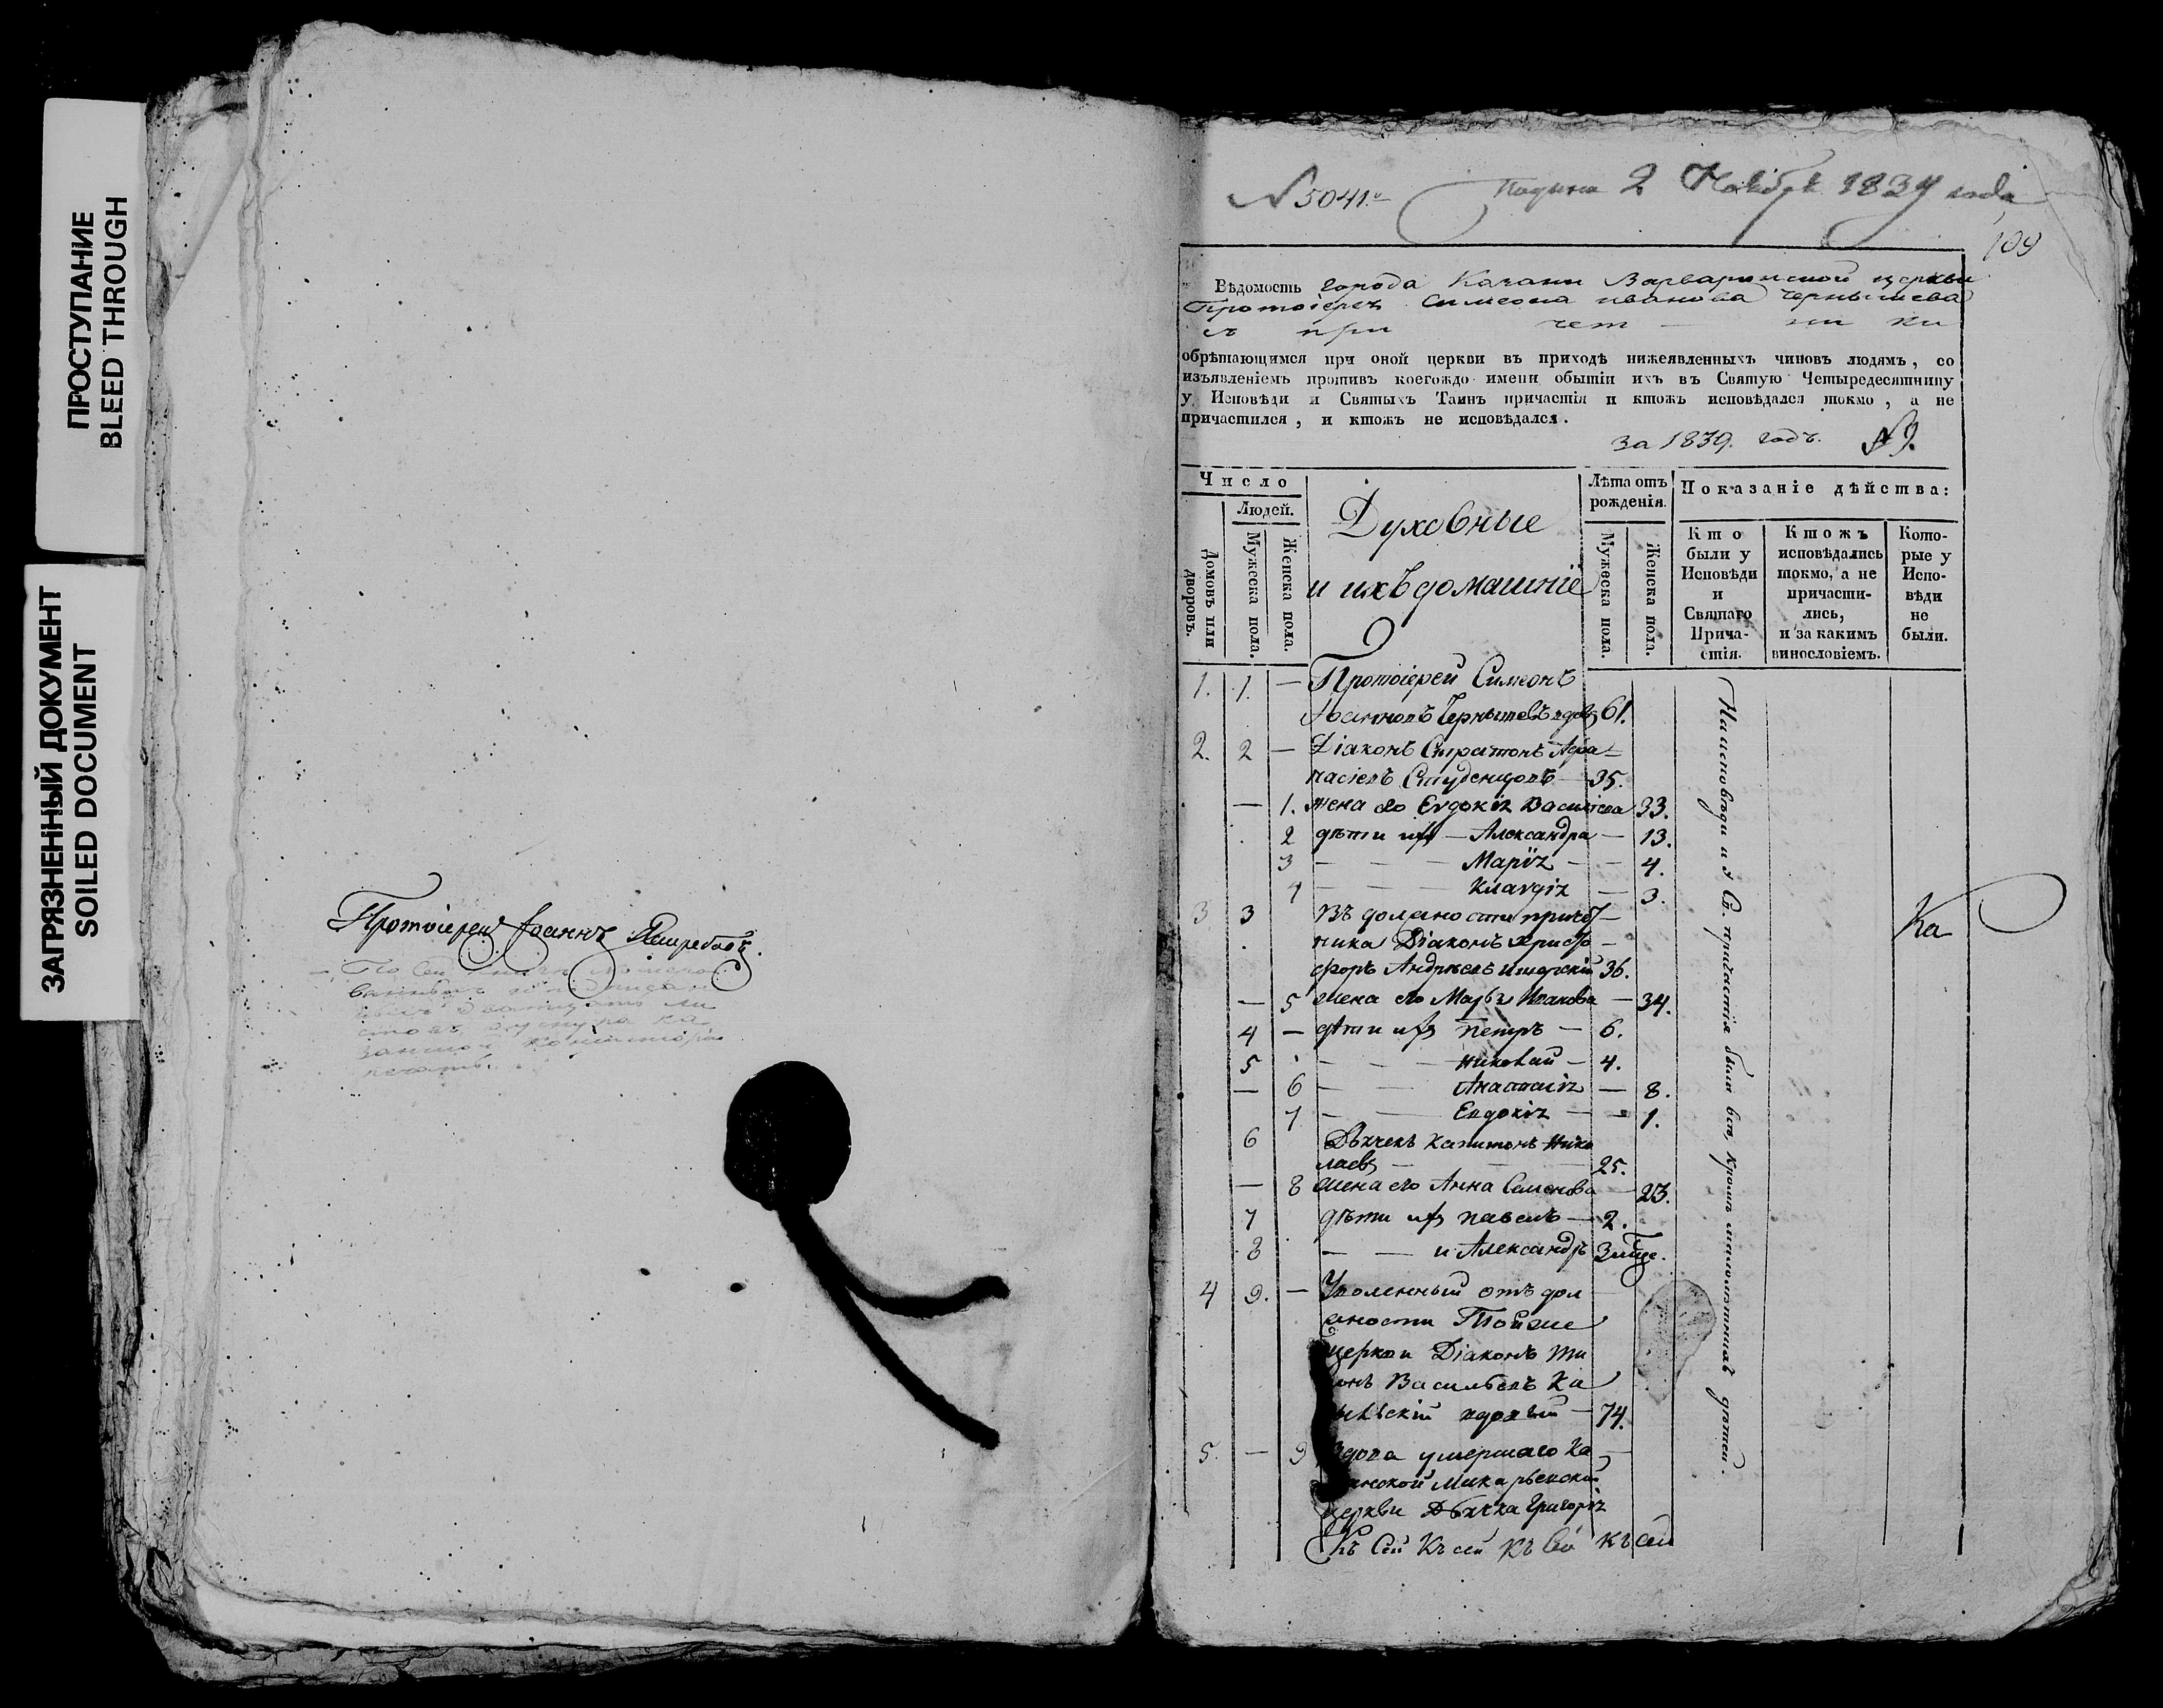 ПРОСТУПАНИЕ
BLEED THROUGH
ЗАГРЯЗНЕННЫЙ ДОКУМЕНТ
SOILED DOCUMENT
Протоіерей Іоаннъ
По сей
печать.
N 5041.
Подана 2 Ноября 1839 года
109
Вѣдомость города Казани Варваринской церкви
Протоіерея Симеона Иванова Чернышева
съ при чет — ни ки
обрѣтающимся при оной церкви въ приходѣ нижеявленныхъ чиновъ людямъ, со
изъявленіемъ противъ коегождо имени обытіи ихъ въ Святую Четыредесятницу
у Исповѣди и Святыхъ Таинъ причастія и ктожъ исповѣдался токмо, а не
причастился, и ктожъ не исповѣдался.
за 1839. годъ. № 9.
Число
Людей.
Домовъ или дворовъ.
Мужеска пола.
Женска пола.
Духовные
и ихъ домашніе
Лѣта отъ рожденія.
Мужеска пола.
Женска пола.
Показаніе дѣйства:
Кто были у Исповѣди и Святаго Прича-стія.
Ктожъ исповѣдались токмо, а не причасти-лись, и за какимъ винословіемъ.
Кото-рые у Испо-вѣди не были.
1. 1. — Протоіерей Симеонъ
Іоанновъ Чернышевъ вдовъ 61.
2. 2 — Діаконъ Стратонъ Афа-
насіевъ Студенцовъ — 35.
— 1. жена его Евдокія Васильева 33.
2 дѣти ихъ — Александра — 13.
3 — — — Марія — — 4.
4 — — — Клавдія — 3.
3 3 Въ должности причет-
ника Діаконъ Христо-
форъ Андреевъ 36.
— 5 жена его Марья Иванова — 34.
4 — дѣти ихъ Петръ — 6.
5 — — — Николай — 4.
— 6 — — Анастасія — 8.
7 — — Евдокія — — 1.
6 Дьячекъ Капитонъ Нико
лаевъ — 25.
— 8 жена его Анна Семенова — 23.
7 дѣти ихъ Павелъ — 2.
8 — — и Александръ
4 9. — Уволенный отъ дол
жности Тойже
церкви Діаконъ Ти
онъ Васильевъ Ка
скій вдовый — 74.
5. — 9 Вдова умершаго Ка
занской Макарьевской
церкви Дьячка Григорія
Къ сей Къ сей Къ сей Къ сей
На исповѣди и у Св. причастія были всѣ, кромѣ малолѣтнихъ дѣтей.
Ка